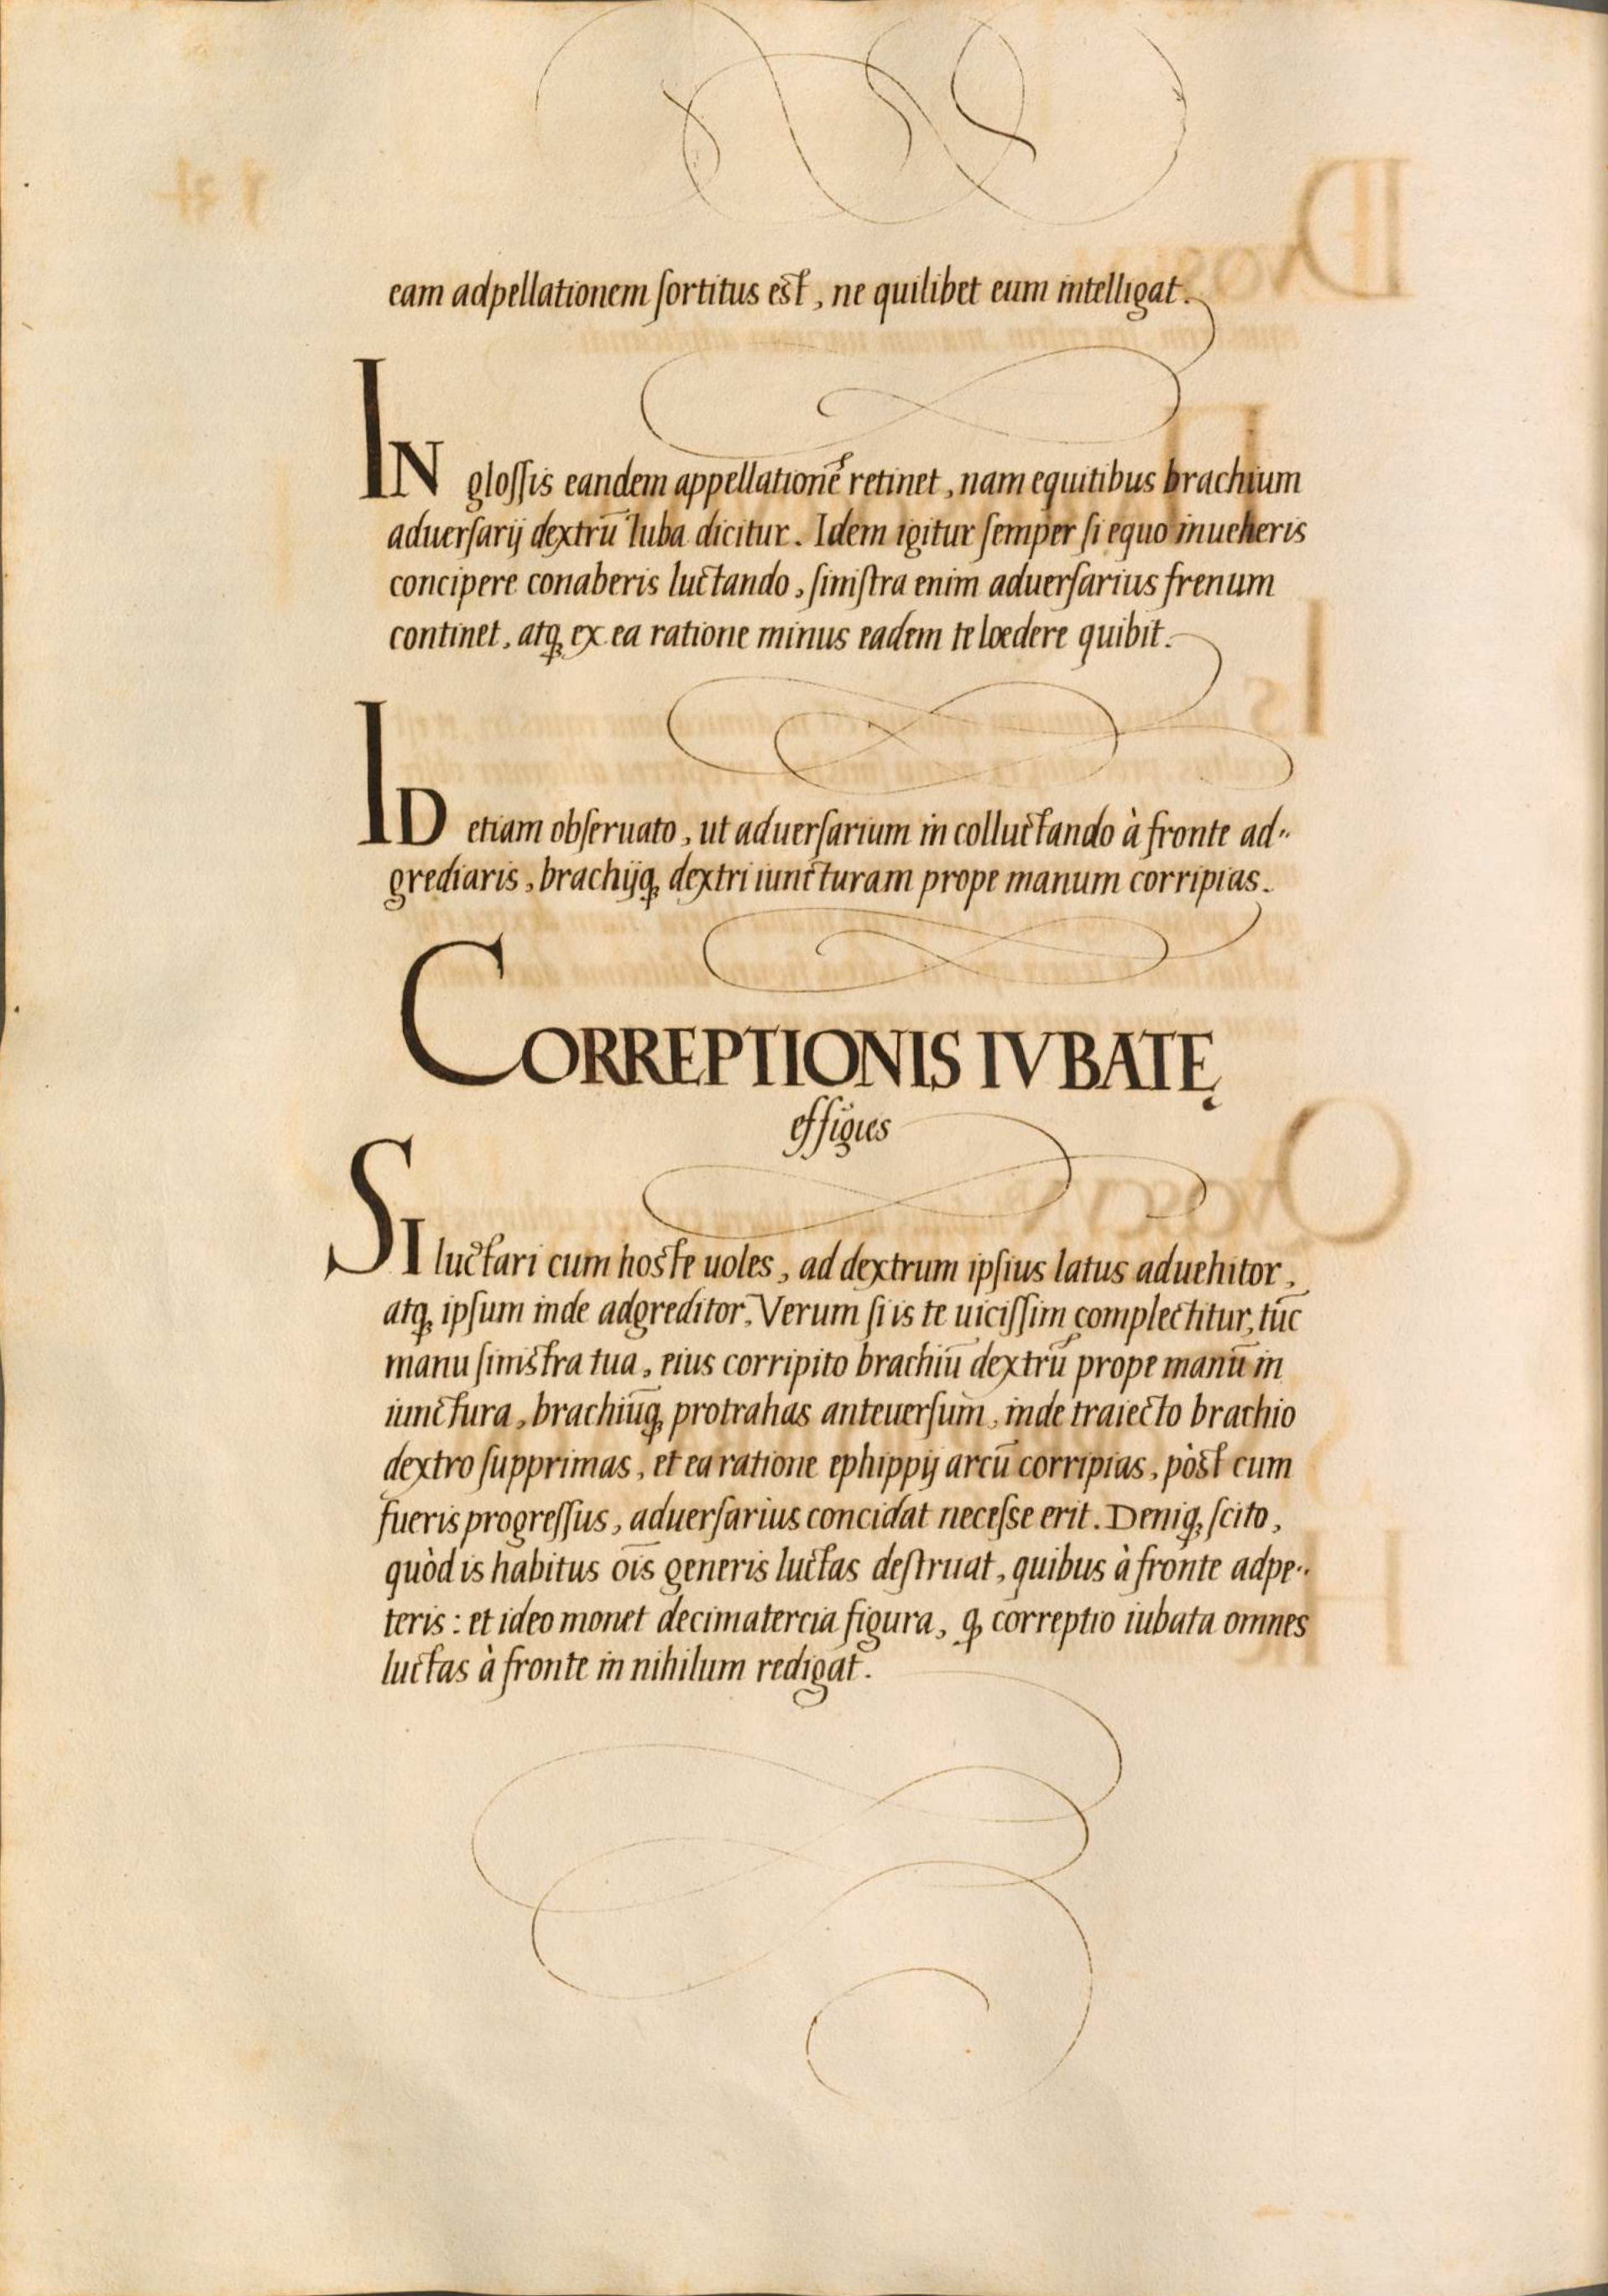 eam adpellationem ſortitus eſt, ne quilibet eum intelligat.
IN gloſſis eandem appellationē retinet, nam equitibus brachium
aduerſarij dextrū Iuba dicitur. Idem igitur ſemper ſi equo inueheris
concipere conaberis luctando, ſiniſtra enim aduerſarius frenum
continet, atq; ex ea ratione minus eadem te lœdere quibit.
ID etiam obſeruato, ut aduerſarium in colluctando à fronte ad-
grediaris, brachijq; dextri iuncturam prope manum corripias.
CORREPTIONIS IVBATĘ
effigies
SI luctari cum hoſte uoles, ad dextrum ipſius latus aduehitor,
atq; ipſum inde adgreditor, Verum ſi is te uiciſſim complectitur, tūc
manu ſiniſtra tua, eius corripito brachiū dextrū prope manū in
iunctura, brachiūq; protrahas anteuerſum, inde traiecto brachio
dextro ſupprimas, et ea ratione ephippij arcū corripias, pòſt cum
fueris progreſſus, aduerſarius concidat neceſse erit. Deniq; ſcito,
quòd is habitus oīs generis luctas deſtruat, quibus à fronte adpe-
teris: et ideo monet decimatercia figura, q; correptio iubata omnes
luctas à fronte in nihilum redigat.